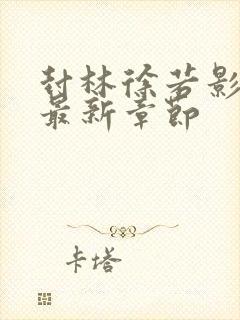 封林徐若影
最新章节
卡塔